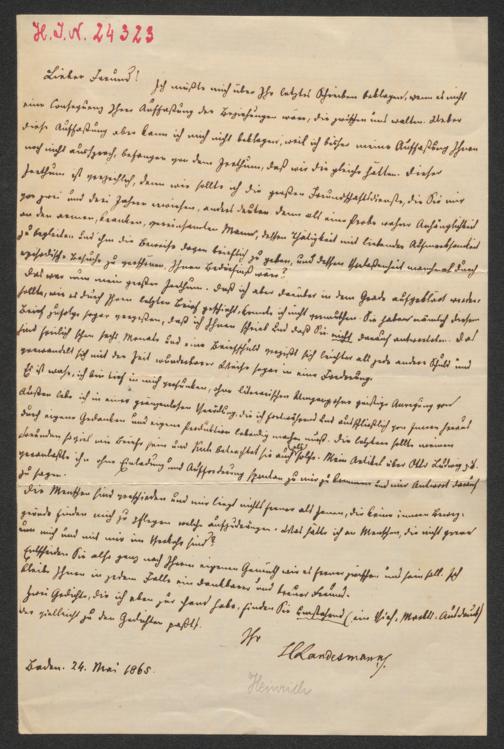 H. I. N. 24323
Lieber Freund! Ich müßte mich über Ihr letztes Schreiben beklagen, wenn es nicht
eine Consequenz Ihrer Auffassung der Beziehungen wäre, die zwischen uns walten. Ueber
diese Auffassung aber kann ich mich nicht beklagen, weil ich bisher meine Auffassung Ihnen
noch nicht aussprach, befangen von dem Irrthum, daß wir die gleiche hätten. Dieser
Irrthum ist verzeihlich, denn wie sollte ich die großen Freundschaftsdienste, die Sie mir
vor zwei und drei Jahren erwiesen, anders deuten denn als eine Probe wahrer Anhänglichkeit
an den armen, kranken, vereinsamten Mann, dessen Thätigkeit mit liebender Aufmerksamkeit
zu begleiten und ihm die Beweise davon brieflich zu geben, und dessen Verlassenheit manchmal durch
periodische Besuche zu Ihnen Bedürfniß wäre?
Das war nun mein großer Irrthum. Daß ich aber darüber in dem Grade aufgeklärt werden
sollte, wie es durch Ihren letzten Brief geschieht, konnte ich nicht vermuthen. Sie haben nämlich diesem
Brief zufolge sogar vergessen, daß ich Ihnen schrieb und daß Sie nicht darauf antworteten. Das
sind freilich schon sechs Monate und eine Briefschuld vergißt sich leichter als jede andere Schuld und
verwandelt sich mit der Zeit wunderbarer Weise sogar in eine Forderung.
Es ist wahr, ich bin tief in mich versunken, ohne literarischen Umgang, ohne geistige Anregung von
Außen lebe ich in einer die ich fortwährend und ausschließlich von innen heraus
durch eigene Gedanken und eigene Produktion lebendig machen muß. Die letztern sollte meinen
Freunden sogar wie Briefe sein und Kuh betrachtet sie auch als solche. Mein Artikel über Otto Ludwig z. B.
veranlaßte ihn ohne Einladung und Aufforderung spontan zu mir zu kommen und mir Antwort darauf
zu sagen.
Die Menschen sind verschieden und mir liegt nichts ferner als Jenen, die keine innern Beweg-
gründe finden mich zu pflegen welche aufzudrängen. Was hätte ich an Menschen, die nicht gerne
um mich und mit mir im Verkehr sind?
Entscheiden Sie also ganz nach Ihrem eigenen Gemüth wie es ferner zwischen uns sein soll. Ich
bleibe Ihnen in jedem Falle ein dankbarer und treuer Freund.
Zwei Gedichte, die ich eben zur Hand habe, finden Sie umstehend (ein
der vielleicht zu den Gedichten paßt).
Ihr
HLandesmann
Baden. 24. Mai 1865.
Heinrich